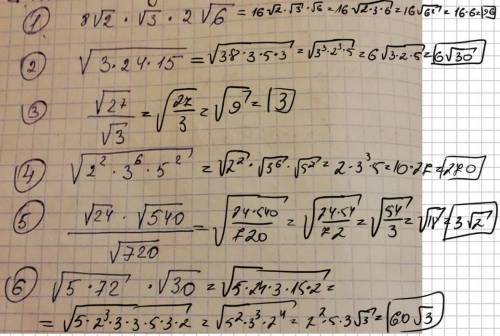 ① 8√2 · √3 · 2√6 = 16√2 · √3 · √6 = 16√2·3·6 = 16√6² = 16·6 = 96
② √3·24·15 = √38·3·5·3 = √3³·2³·5 = 6√3·2·5 = 6√30
③ √27/√3 = √27/3 = √9 = 3
④ √2²·3⁶·5² = √2² · √3⁶ · √5² = 2·3³·5 = 10·27 = 270
⑤ √24 · √540 / √720 = √24·540/720 = √24·54/72 = √54/3 = √18 = 3√2
⑥ √5·72 · √30 = √5·24·3·15·2 =
= √5·2³·3·3·5·3·2 = √5²·3³·2⁴ = 2²·5·3√3 = 60√3